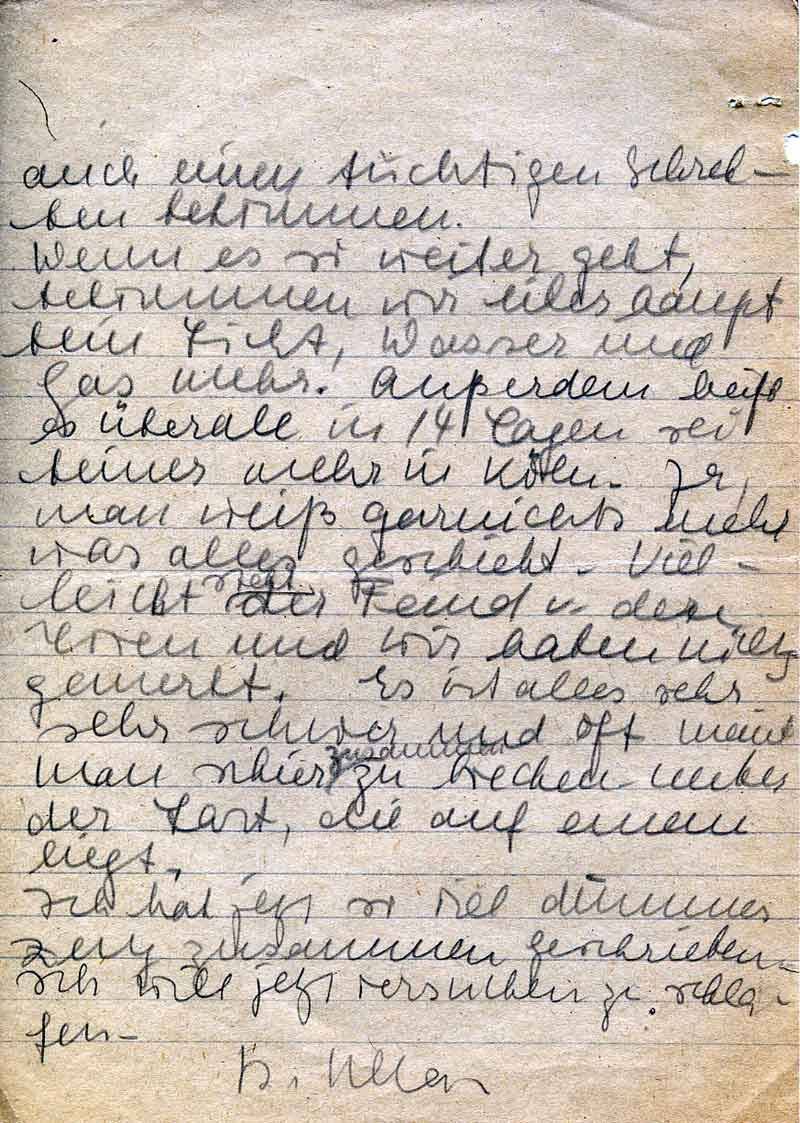 auch einen tüchtigen Schrek-
ken bekommen.
Wenn es so weiter geht,
bekommen wir überhaupt
kein Licht, Wasser und
Gas mehr. Außerdem heißt
es überall in 14 Tagen sei
keiner mehr in Köln. Ja,
man weiß garnichts mehr
was alles geschieht. Viel-
leicht steht der Feind v. den
Toren und wir haben nichts
gemerkt. Es ist alles sehr
sehr schwer und oft meint
man schier zusammen zu brechen unter
der Last, die auf einem
liegt.
Ich hab jetzt so viel dummes
Zeug zusammen geschrieben.
Ich will jetzt versuchen zu schla-
fen.-